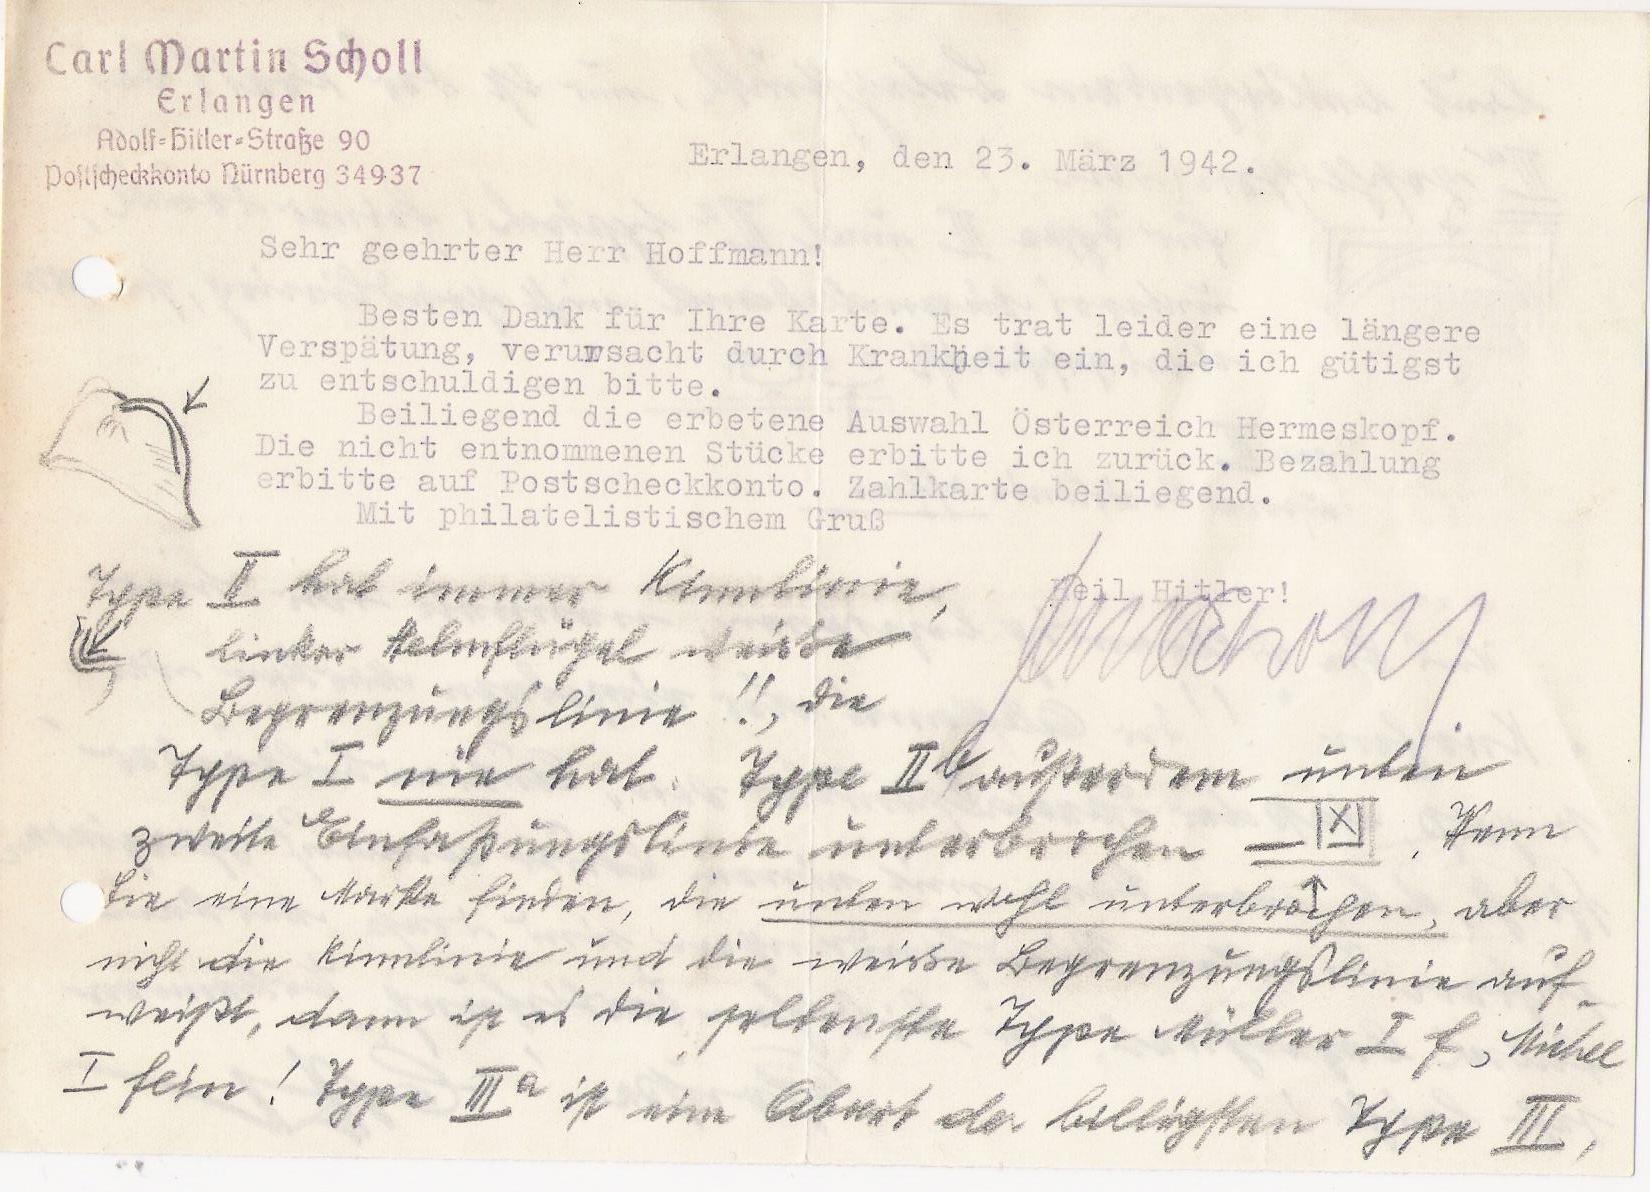 Carl Martin Scholl
Erlangen
Adolf-Hitler-Straße 90
Postscheckkonto Nürnberg 34937
Erlangen, den 23. März 1942.
Sehr geehrter Herr Hoffmann!
Besten Dank für Ihre Karte. Es trat leider eine längere
Verspätung, verursacht durch Krankheit ein, die ich gütigst
zu entschuldigen bitte.
Beiliegend die erbetene Auswahl Österreich Hermeskopf.
Die nicht entnommenen Stücke erbitte ich zurück. Bezahlung
erbitte auf Postscheckkonto. Zahlkarte beiliegend.
Mit philatelistischem Gruß
Heil Hitler!
Type II hat immer Kinnlinie,
linker Helmflügel weisse
Begrenzungslinie !!, die
Type I nie hat. Type IIb außerdem unten
zweite Einfaßungslinie unterbrochen X. Wenn
Sie eine Marke finden, die unten wohl unterbrochen, aber
nicht die Kinnlinie und die weisse Begrenzungslinie auf-
weißt, dann ist es die seltenste Type Müller I f, Michel
I fein! Type IIIa ist eine Abart der billigsten Type III,